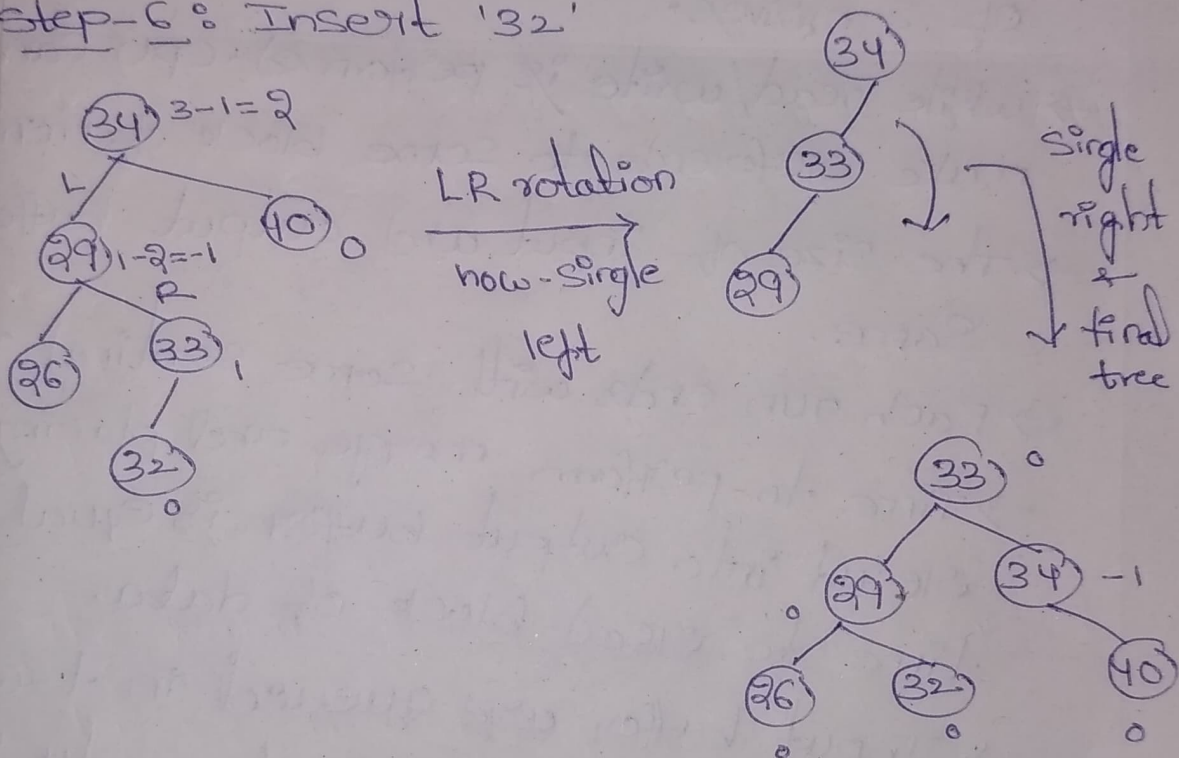 Step-6: Insert '32'
34 3-1=2
L
29 1-2=-1
40 0
R
26
33 1
32
0
LR rotation
now-single
left
34
33
29
single
right
&
final
tree
33 0
0 29
34 -1
26
32
40
0
0
0